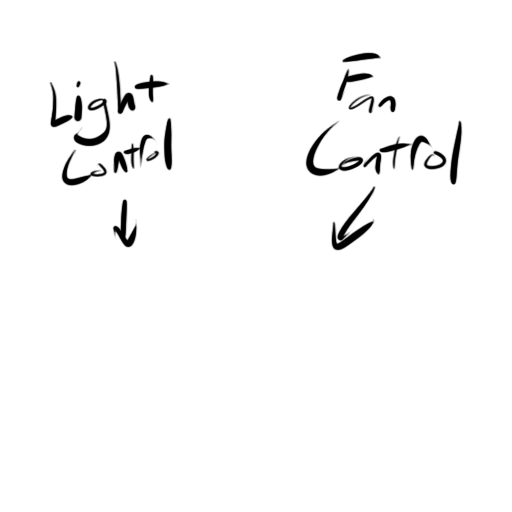 Light
Control
Fan
Control